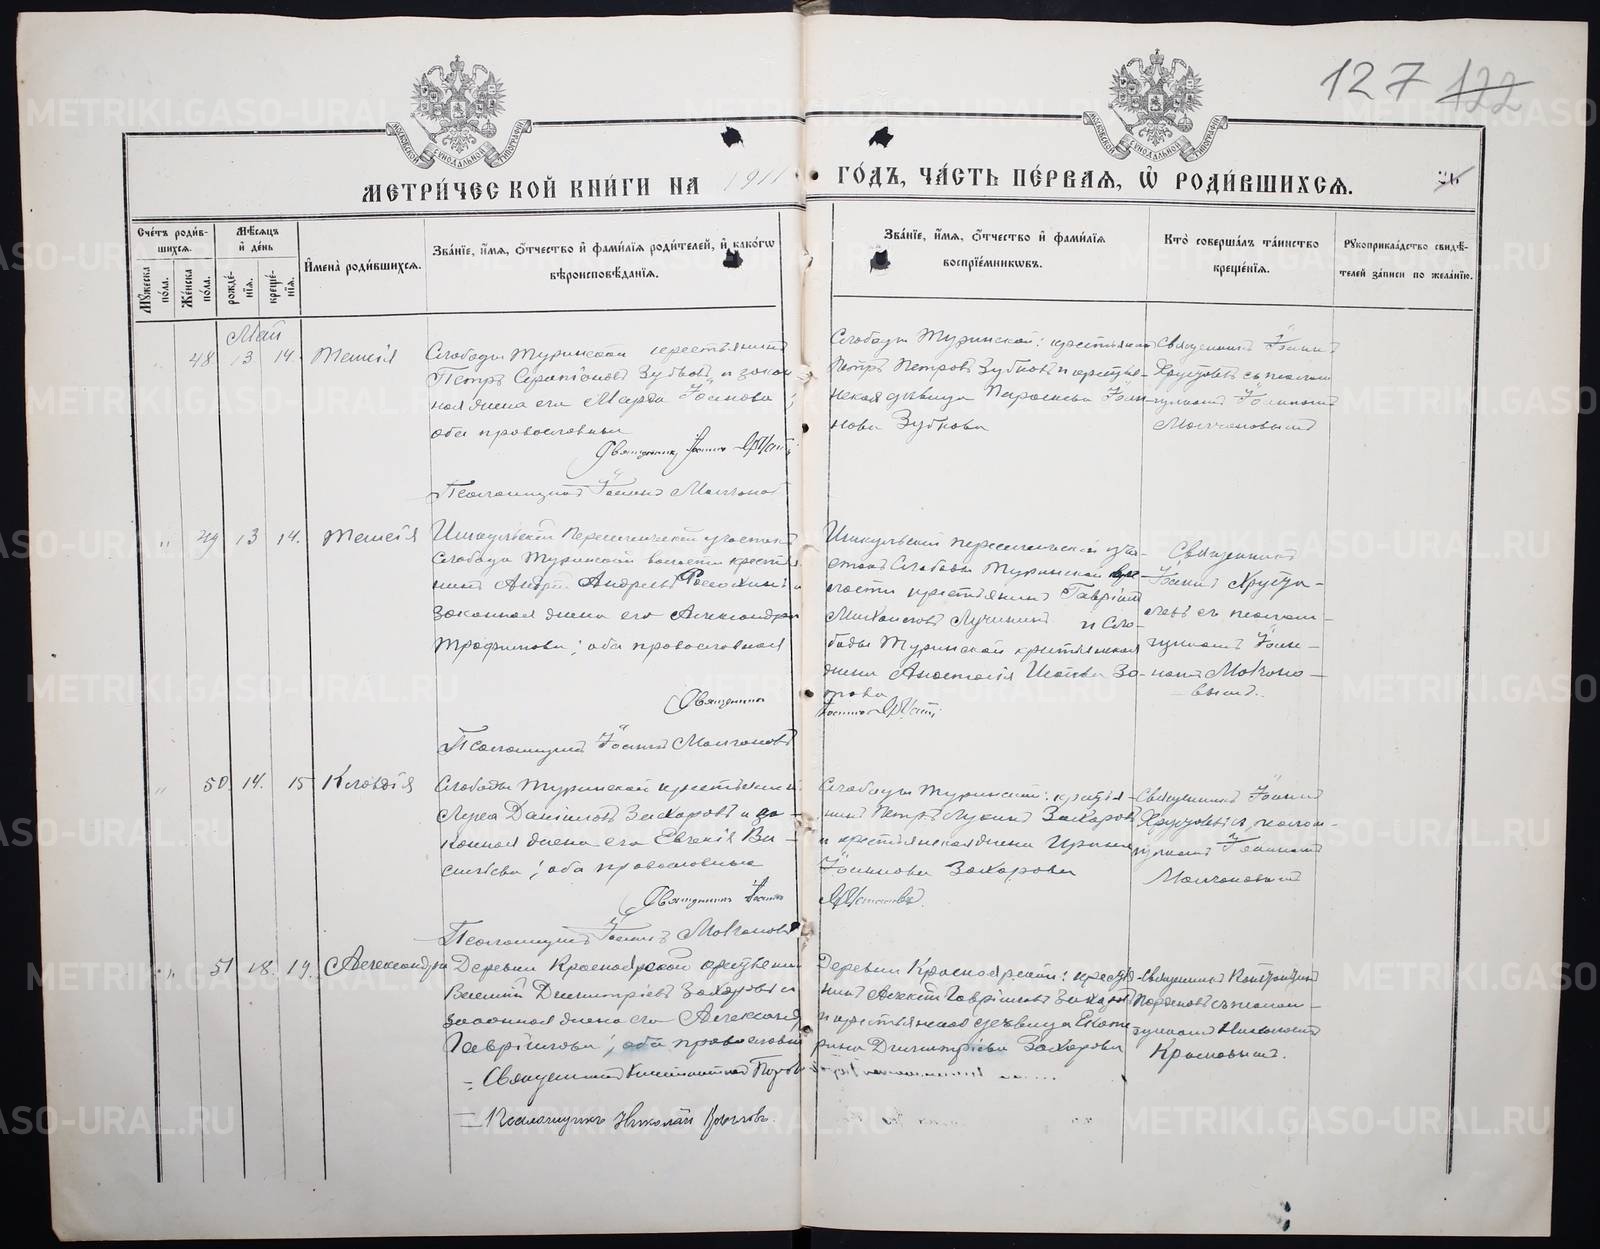 127 122
МОСКОВСКОЙ СѴНОДАЛЬНОЙ ТИПОГРАФІИ
МОСКОВСКОЙ СѴНОДАЛЬНОЙ ТИПОГРАФІИ
МЕТРИ́ЧЕСКОЙ КНИ́ГИ НА 1911 ГО́ДЪ, ЧА́СТЬ ПЕ́РВАѦ, Ѽ РОДИ́ВШИХСѦ.
Сче́тъ роди́в-
шихсѧ.
Мꙋжеска по́ла.
Же́нска по́ла.
Мѣ́сѧцъ
и҆ де́нь
рожде́-
нїѧ.
креще́-
нїѧ.
И҆мена̀ роди́вшихсѧ.
Зва́нїе, и҆́мѧ, ѻ҆́тчество и҆ фамилїѧ роди́телей, и҆ како́гѡ
вѣроисповѣ́данїѧ.
Зва́нїе, и҆́мѧ, ѻ҆́тчество и҆ фами́лїѧ
воспрїе́мникѡвъ.
Кто̀ соверша́лъ та́инство
креще́нїѧ.
Рꙋкоприкла́дство свидѣ́-
телей за́писи по жела́нїю.
Май
48 13 14. Таисія
Слободы Туринской крестьянинъ
Петръ Серапіоновъ Зубковъ и закон
ная жена его Марфа Іоанова;
оба православные
Священникъ Іоаннъ
Псаломщикъ Іоаннъ Молчановъ
Слободы Туринской: крестьянинъ
Петръ Петровъ Зубковъ и крестьян-
ская дѣвица Параскева Іоан-
нова Зубкова
Священникъ Іоаннъ
Хрусталевъ съ псалом
щикомъ Іоанномъ
Молчановымъ
49 13 14. Таисія
переселенческій участокъ
Слободы Туринской волости крестья
нинъ Андрей и
законная жена его Александра
Трофимова; оба православные
Священникъ
Псаломщикъ Іоаннъ Молчановъ
переселенческій уча-
стокъ Слободы Туринской во-
лости крестьянинъ Гавріилъ
Михаиловъ Лучининъ и Сло-
боды Туринской крестьянская
жена Анастасія
Іоаннъ
Священникъ
Іоаннъ Хруста-
левъ съ псалом-
щикомъ Іоан-
номъ Молчано-
вымъ.
50. 14. 15 Клавдія
Слободы Туринской крестьянинъ
Лука Даніиловъ Захаровъ и за-
конная жена его Евгенія Ва-
сильева; оба православные
Священникъ Іоаннъ
Псаломщикъ Іоаннъ Молчановъ
Слободы Туринской: крестья-
нинъ Петръ Лукинъ Захаровъ
и крестьянская жена Ирина
Іоаннова Захарова
Священникъ Іоаннъ
Хрусталевъ съ псалом-
щикомъ Іоанномъ
Молчановымъ
51 18. 19. Александра
Деревни Красноярской крестьянинъ
Василій Димитріевъ Захаровъ и
законная жена его Александра
Гавріилова; оба православные
= Священникъ Константинъ
= Псаломщикъ Николай
Деревни Красноярской: крестья-
нинъ Алексѣй Гавріиловъ Захаровъ
и крестьянская дѣвица Екате
рина Димитріева Захарова
Священникъ Константинъ
съ псалом-
щикомъ Николаемъ
METRIKI.GASO-URAL.RU